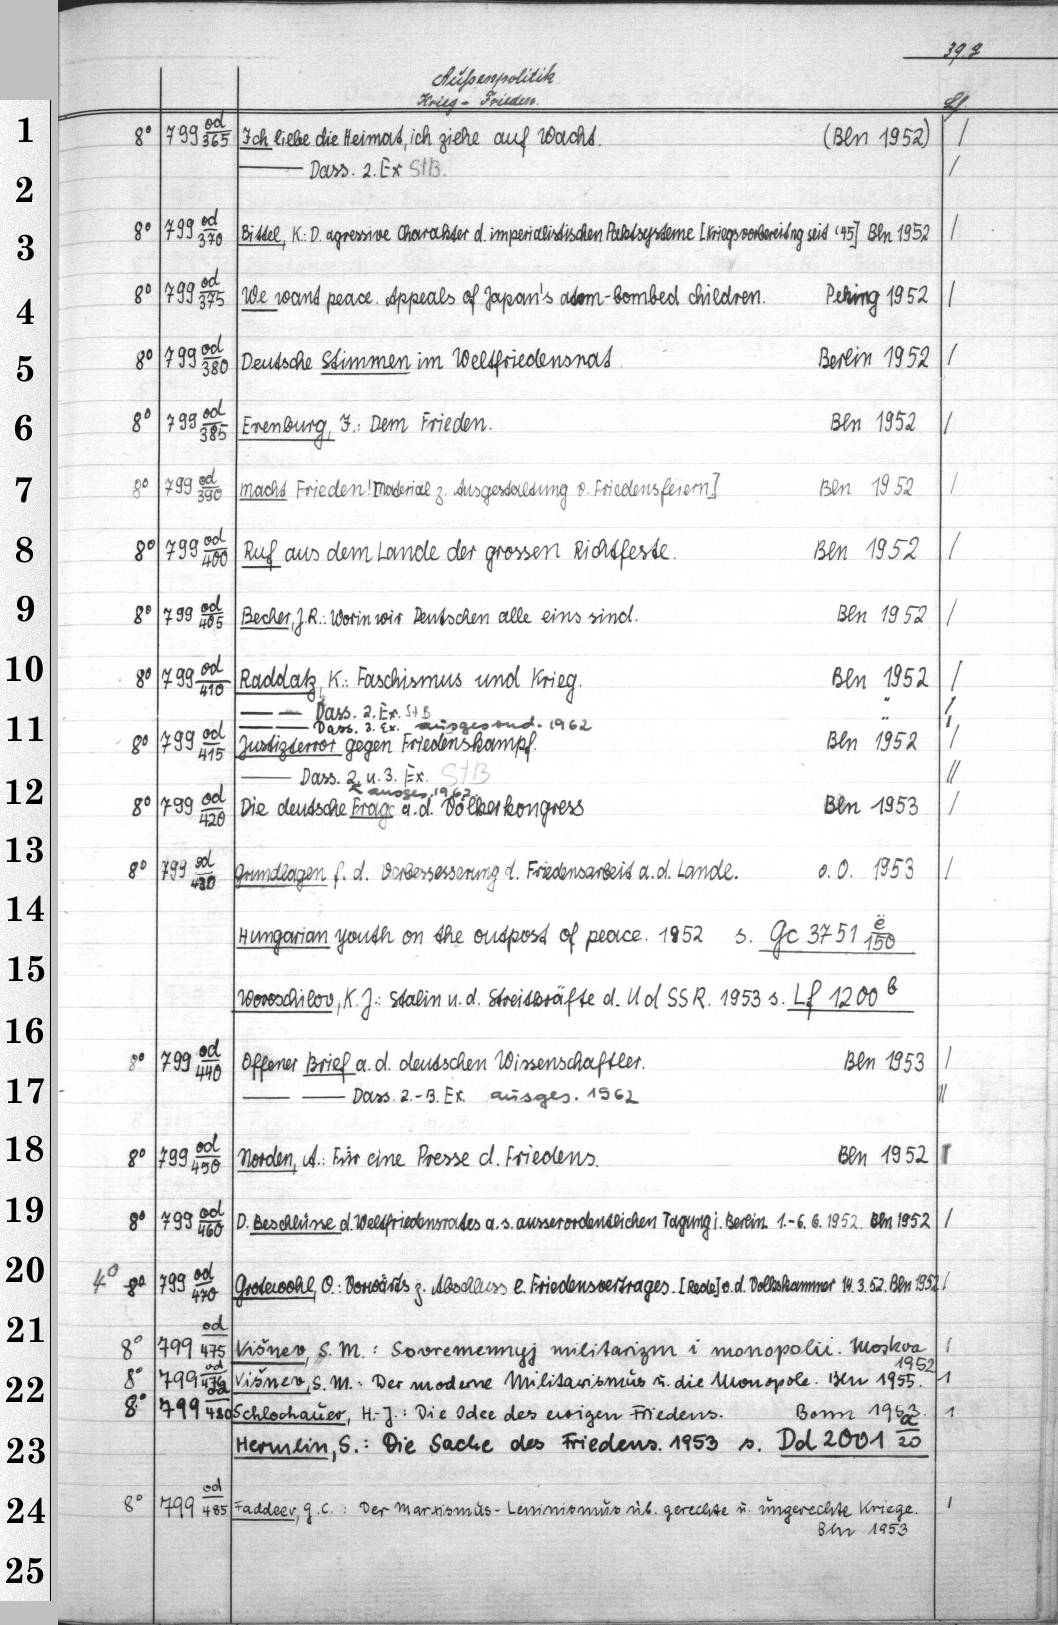 39 g
Außenpolitik
Krieg - Frieden.
1 8° 799 od/365 Ich liebe die Heimat, ich ziehe auf Wacht. (Bln 1952) /
—— Dass. 2. Ex StB. /
2
3 8° 799 od/370 Bittel, K.: D. agressive Charakter d. imperialistischen Paktsysteme [Kriegsvorbereitng seit '45] Bln 1952 /
4 8° 799 od/375 We want peace. Appeals of Japan's atom-bombed children. Peking 1952 /
5 8° 799 od/380 Deutsche Stimmen im Weltfriedensrat. Berlin 1952 /
6 8° 799 od/385 Erenburg, I.: Dem Frieden. Bln 1952 /
7 8° 799 od/390 Macht Frieden! [Material z. Ausgestaltung v. Friedensfeiern] Bln 1952 /
8 8° 799 od/400 Ruf aus dem Lande der grossen Richtfeste. Bln 1952 /
9 8° 799 od/405 Becher, J.R.: Worin wir Deutschen alle eins sind. Bln 1952 /
10 8° 799 od/410 Raddatz, K.: Faschismus und Krieg. Bln 1952 /
—— —— Dass. 2. Ex. StB " /
—— —— Dass. 3. Ex. ausgesond. 1962 " /
11 8° 799 od/415 Justizterror gegen Friedenskampf. Bln 1952 /
—— Dass. 2. u. 3. Ex. StB //
ausges. 1962
12 8° 799 od/420 Die deutsche Frage a.d. Völkerkongress Bln 1953 /
13 8° 799 od/430 Grundlagen f. d. Verbesserung d. Friedensarbeit a.d. Lande. o. O. 1953 /
14 Hungarian youth on the outpost of peace. 1952 s. Gc 3751 ë/150
15 Woroschilov, K. J.: Stalin u. d. Streitkräfte d. UdSSR. 1953 s. Lf 1200 b
16 8° 799 od/440 Offener Brief a.d. deutschen Wissenschaftler. Bln 1953 /
17 —— —— Dass. 2.-3. Ex. ausges. 1962 //
18 8° 799 od/450 Norden, A.: Für eine Presse d. Friedens. Bln 1952 /
19 8° 799 od/460 D. Beschlüsse d. Weltfriedensrates a. s. ausserordentlichen Tagung i. Berlin 1.-6. 6. 1952. Bln 1952 /
20 4° 8° 799 od/470 Grotewohl, O.: Vorwärts z. Abschluss e. Friedensvertrages. [Rede] v. d. Volkskammer 14. 3. 52. Bln 1952 /
21 8° 799 od/475 Višnev, S. M.: Sovremennyj militarizm i monopolii. Moskva 1952 /
22 8° 799 od/476 Višnev, S. M.: Der moderne Militarismus u. die Monopole. Bln 1955. 1
8° 799 od/480 Schlochauer, H.-J.: Die Idee des ewigen Friedens. Bonn 1953. 1
23 Hermlin, S.: Die Sache des Friedens. 1953 s. Dd 2001 a/20
24 8° 799 od/485 Faddeev, G. C.: Der Marxismus-Leninismus üb. gerechte u. ungerechte Kriege. 1
Bln 1953
25